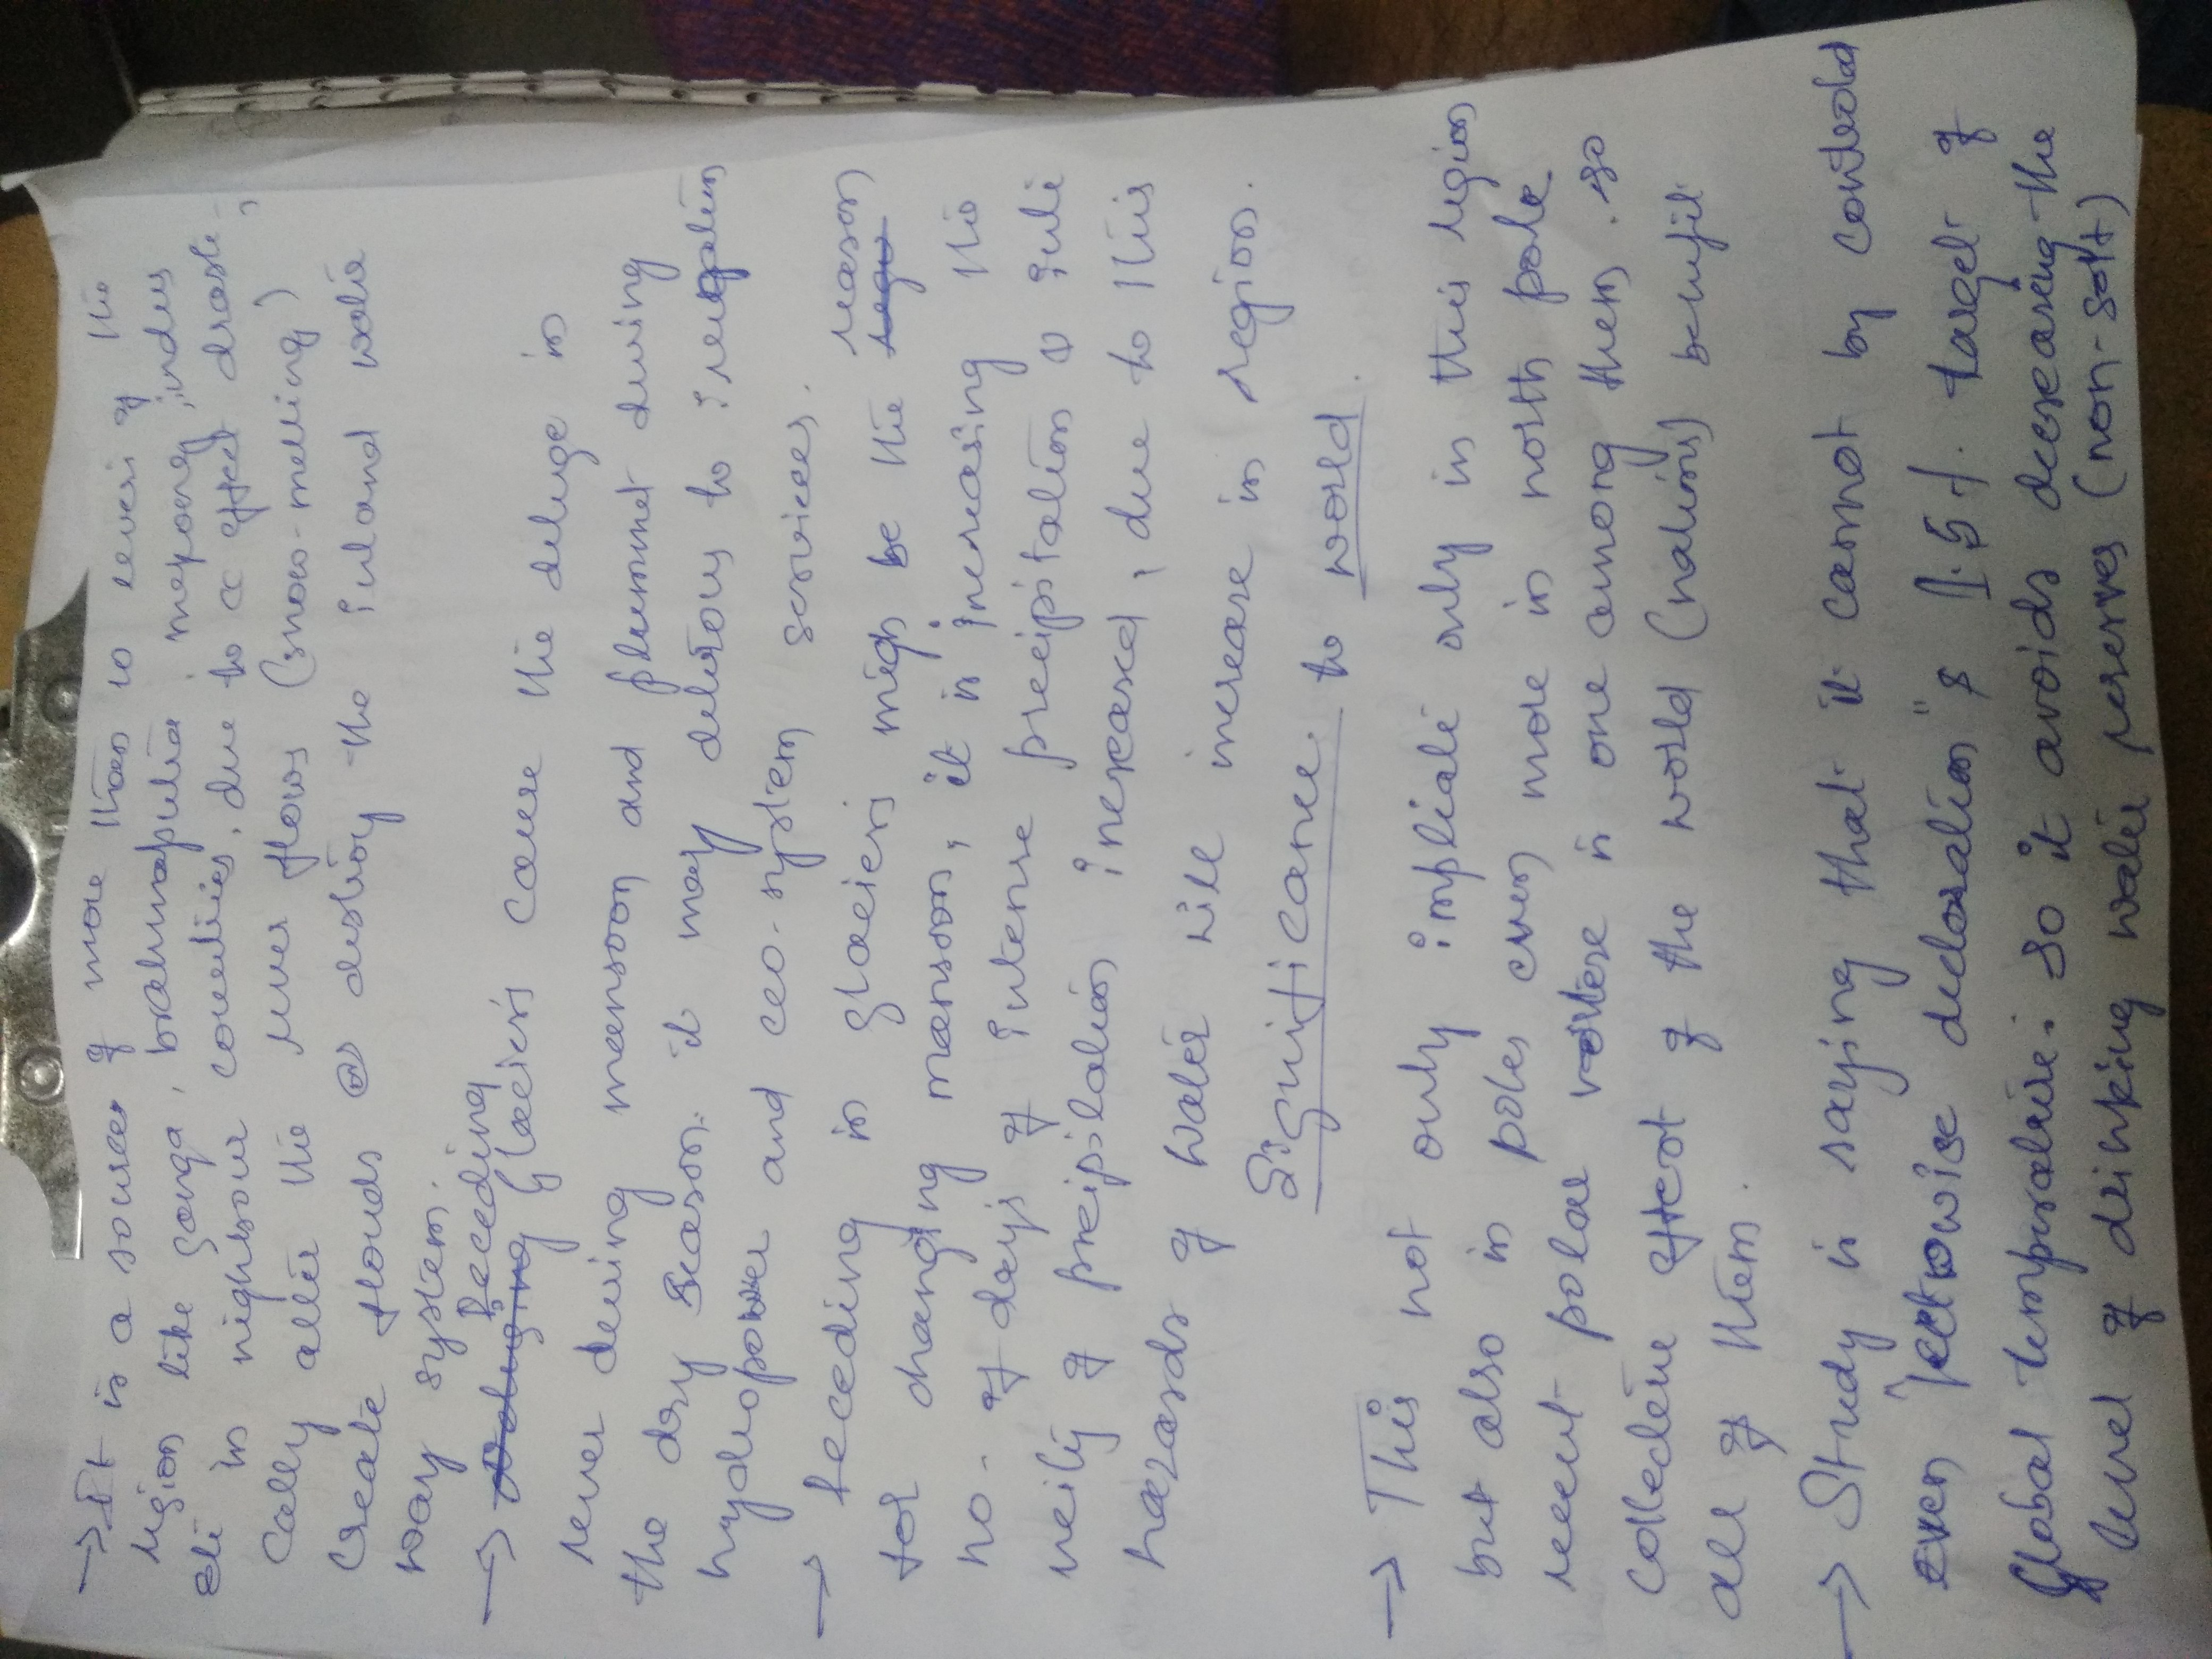 → It is a source of more than 10 rivers of the
region like ganga, brahmaputra meycong, indus
etc in nighbour countries. due to a effect drasti-
cally alter the river flows (snow-melting)
create floods or destroy the inland water
way system.
→ Receeding glaciers cause the deluge in
river during monsoon and plummet during
the dry season. it may detrious to irrigation
hydropower and eco-system services.
→ Receeding in glaciers migh be the reason
for changing monson, it is increasing the
no. of days of intense precipitation & inte
nsity of precipitation increased, due to this
hazards of water will increase in region.
Significance to world.
→ This not only impliate only in this region
but also in poles even more in north pole.
recent polar vortese is one among them. so
collective effect of the world (nations) benifit
all of them.
→ Study is saying that it cannot by controled
even declaration" of 1.5%. target of
global temperature. so it avoids decreasing the
level of drinking water reserves (non-salt)